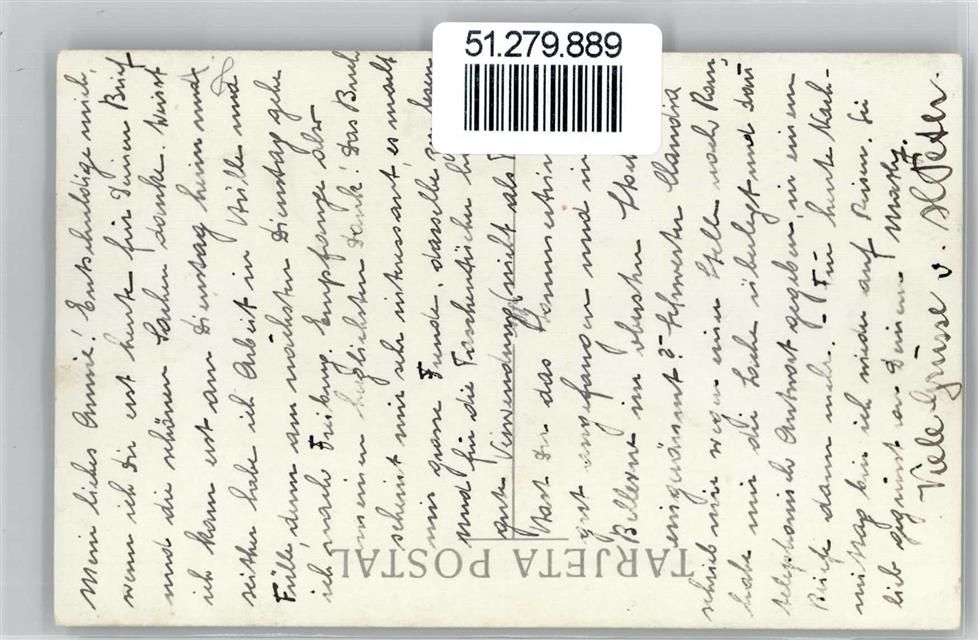 51.279.889
TARJETA POSTAL
Mein liebes Annie! Entschuldige mich,
wenn ich Dir erst heute für Deinen Brief
und die schönen Sachen danke. Weisst
ich kam erst am Dienstag heim und
seither habe ich Arbeit in Hülle und
Fülle, denn am nächsten Dienstag gehe
ich nach Freiburg. Empfange also
meinen herzlichsten Dank! Das Buch
scheint mir sehr interessant, es macht
mir grosse Freude, dasselbe zu lesen
und für die Taschentücher
gute Verwendung,
Hast Du das
gut angefangen und
Bellevue im obersten
eingeräumt? Schwester Claudia
schrieb mir wegen einer Stelle nach
habe mir die Sache überlegt und
telephonisch Antwort gegeben, in einem
Briefe dann mehr. In heute Nach-
mittag bin ich wieder auf Reisen. Sei
lieb gegrüsst von Deinem Marthy.
Viele Grüsse v. Peter.